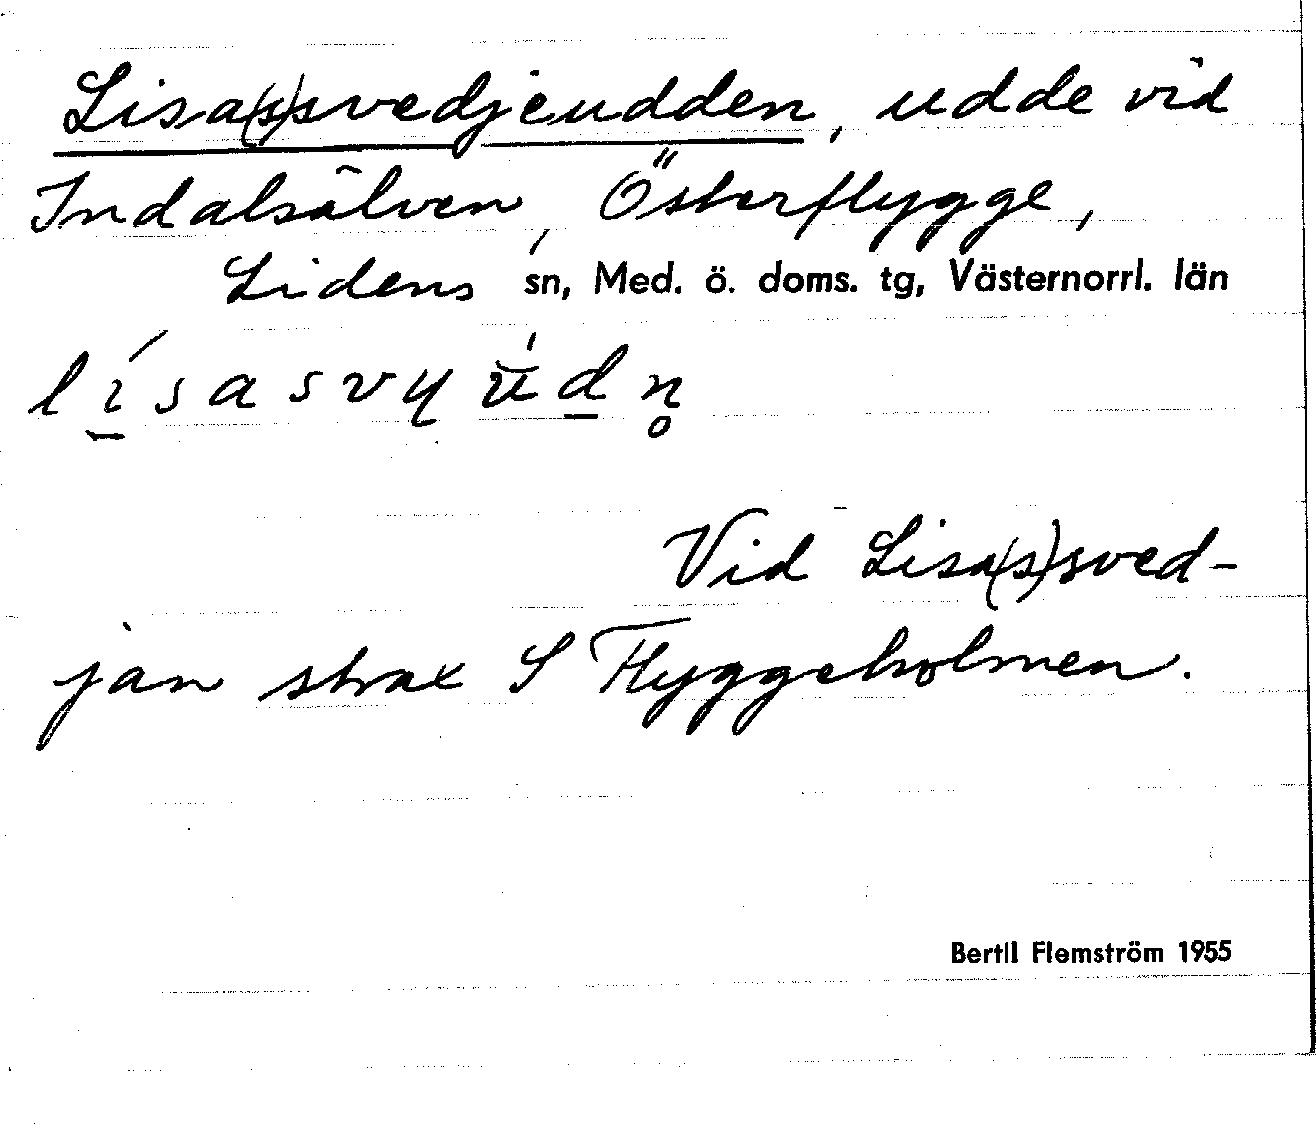 Lisa(s)svedjeudden, udde vid
Indalsälven, Österflygge,
Lidens sn, Med. ö. doms. tg, Västernorrl. län
lísasvyúdn̥
Vid Lisa(s)sved-
jan strax S Flyggeholmen.
Bertil Flemström 1955